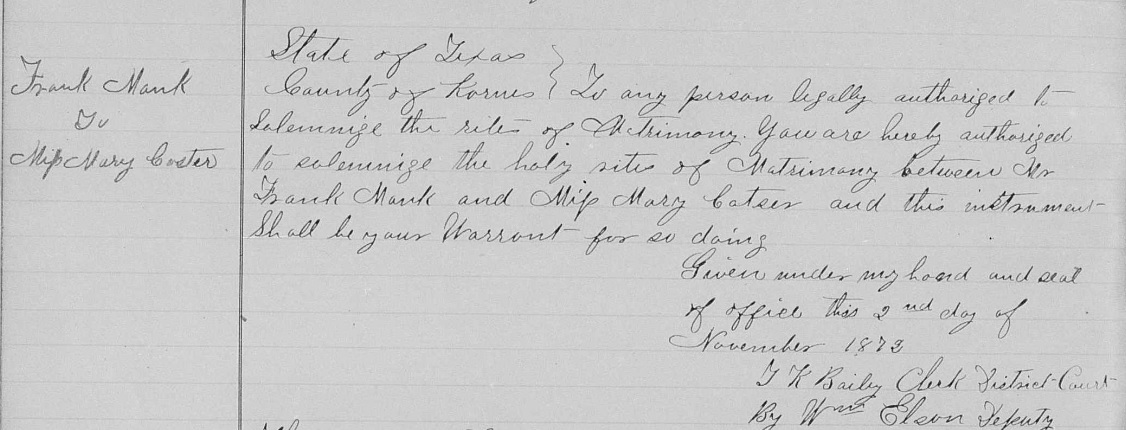 Frank Mank
To
Miss Mary Coster
State of Texas
County of Karnes } To any person legally authorized to
Solemnize the rites of Matrimony. You are hereby authorized
to solemnize the holy rites of Matrimony between Mr
Frank Mank and Miss Mary Catser and this instrument
Shall be your Warrant for so doing
Given under my hand and seal
of office this 2nd day of
November 1873
Clerk District Court
By Wm Elson Deputy